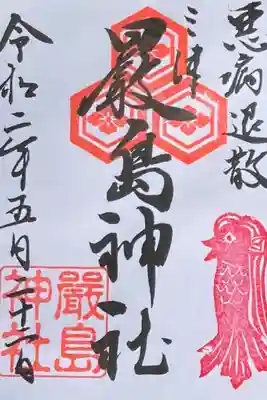 悪病退散
三津
嚴島神社
令和二年五月
嚴島
神社